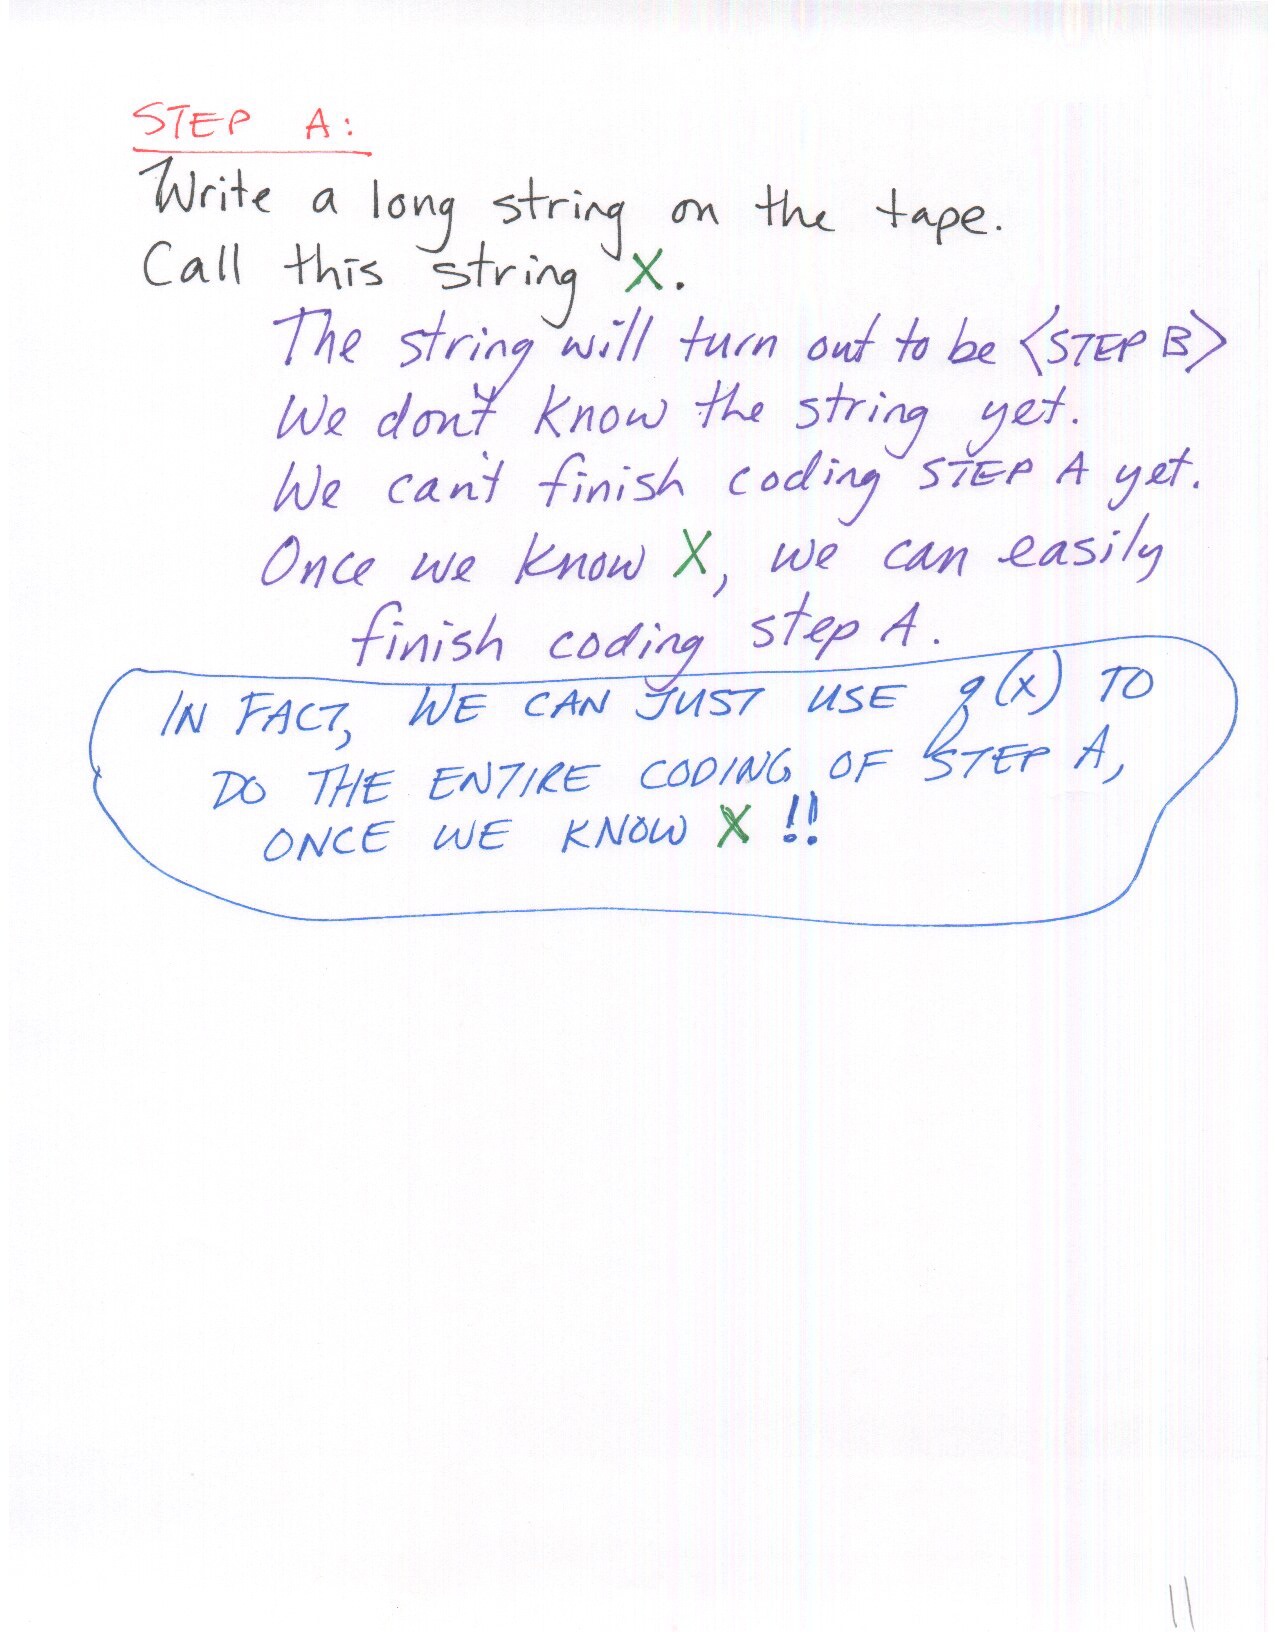 STEP A:
Write a long string on the tape.
Call this string X.
The string will turn out to be <STEP B>
We don't know the string yet.
We can't finish coding STEP A yet.
Once we know X, we can easily
finish coding step A.
IN FACT, WE CAN JUST USE q(x) TO
DO THE ENTIRE CODING OF STEP A,
ONCE WE KNOW X !!
11